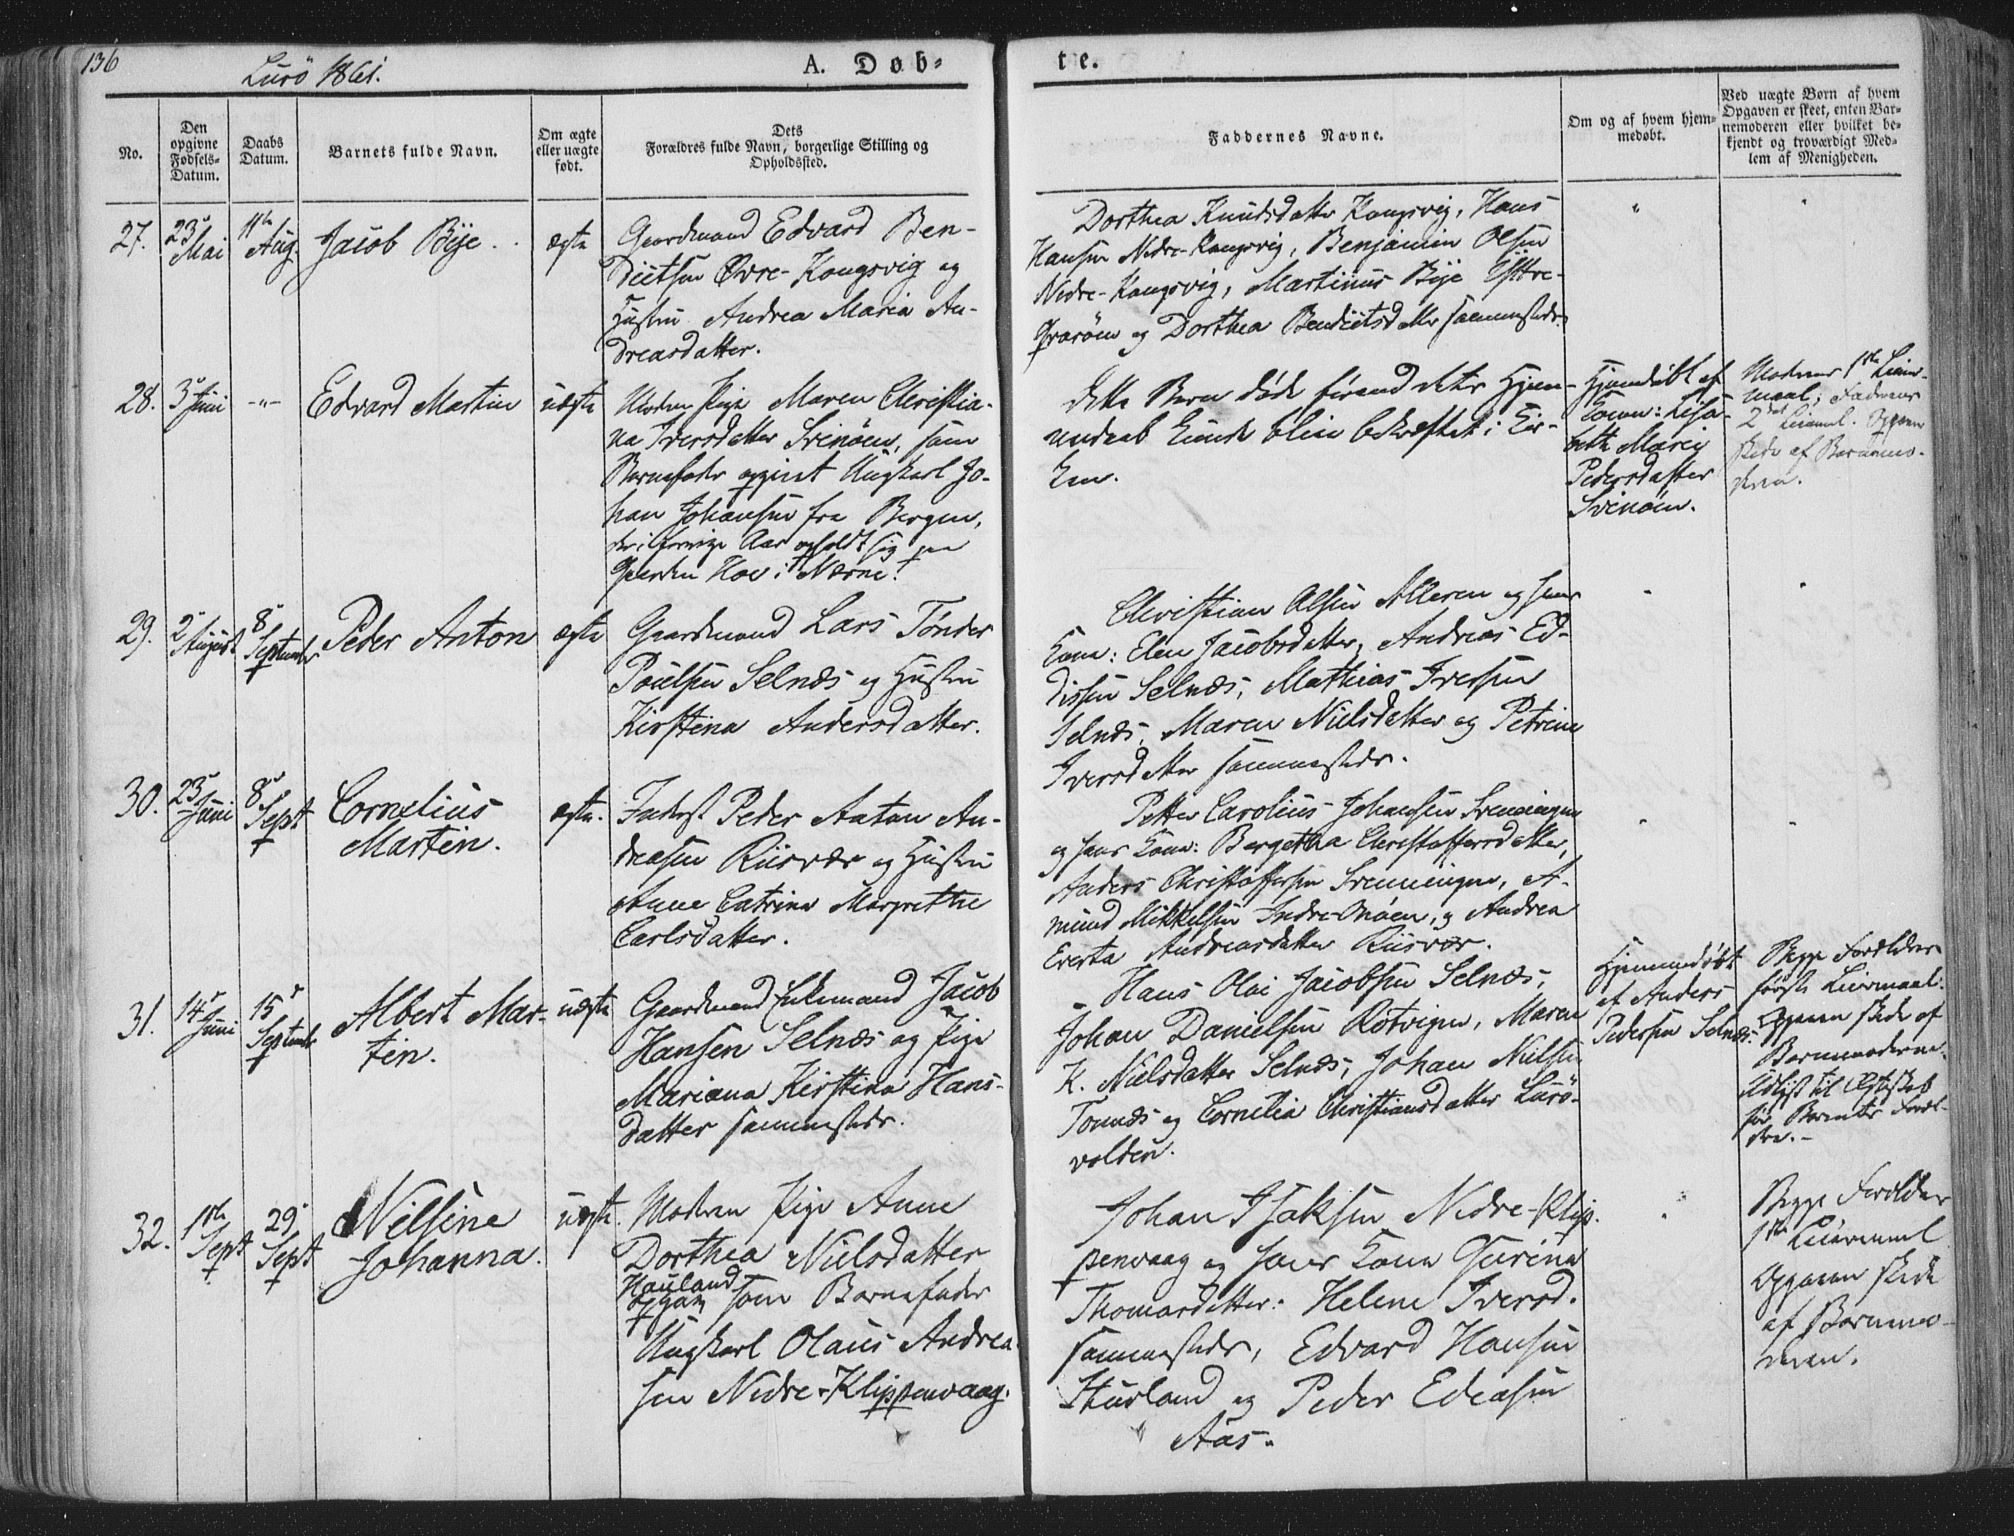 136
Lurö 1861.
A. Døb-
te.
No.
Den
opgivne
Fødsels-
Datum.
Daabs
Datum.
Barnets fulde Navn.
Om ægte
eller uægte
født.
Dets
Forældres fulde Navn, borgerlige Stilling og
Opholdssted.
Faddernes Navne.
Om og af hvem hjem-
medøbt.
Ved uægte Børn af hvem
Opgaven er skeet, enten Bar-
nemoderen eller hvilket be-
kjendt og troværdigt Med-
lem af Menigheden.
27.
23
Mai
11te
Aug.
Jacob Bye.
ægte
Gaardmand Edvard Ben-
dictsen Øvre-Kongsvig og
Hustru Andrea Maria An-
dreasdatter.
Dorthea Knudsdatter Kongsvig, Hans
Hansen Nedre-Kongsvig, Benjamin Olsen
Nedre-Kongsvig, Martinus Bye Ÿttre-
og Dorthea Bendictsdatter sammesteds.
28.
3 Juni
-"-
Edvard Martin
uægte
Moder Pige Maren Christia-
na Iversdatter Svinöen, som
Barnefader opgivet Ungkarl Jo-
han Johansen fra Bergen,
der i forrige Aar opholdt sig paa
Gaarden Hov i Nærøe.
dette Barn døde førend dets Hjem-
medaab kunde blive bekræftet i Kir-
ken.
Hjemdöbt af
Kone: Lisa-
beth Marie
Pedersdatter
Svinöen.
Moderens 1ste Leier-
maal; Faderens
2det Leierml. Opgaven
skede af Barnemo-
deren.
29.
2
August
8
September
Peder Anton
ægte
Gaardmand Lars Tönder
Poulsen Selnæs og Hustru
Kirstina Andersdatter.
Christian Olsen Alleren og hans
Kone: Elen Jacobsdatter, Andreas Ed-
Selnæs, Mathias Iversen
Selnæs, Maren Nielsdatter og Petrine
Iversdatter sammesteds.
30.
23
Juni
8
Sept
Cornelius
Martin.
ægte.
Inderst Peder Anton An-
dreasen Riisvær og Hustru
Anne Catrina Margrethe
Carlsdatter.
Petter Carolius Johansen Svenningen
og hans Kone: Bergetha Christoffersdatter,
Anders Christoffersen Svenningen, A-
mund Mikkelsen Indre-Onöen, og Andrea
Everta Andreasdatter Riisvær.
31.
14
Juni
15
September
Albert Mar-
tin.
uægte
Gaardmand Enkemand Jacob
Hansen Selnæs og Pige
Mariana Kirstina Hans-
datter sammesteds.
Hans Olai Jacobsen Selnæs,
Johan Danielsen Rotvigen, Maren
K. Nielsdatter Selnæs, Johan Nielsen
Tonnæs og Cornelia Christiansdatter Lurö-
volden.
Hjemmedöbt
af Anders
Pedersen Selnæs.
Begge Forældres
første Leiermaal.
Opgaven skede af
Barnemoderen.
Udlyst til Ægteskab
for Barnets Foræl-
dre.
32.
1ste
Sept
29
Sept
Nilsine
Johanna.
uægte.
Moderen Pige Anne
Dorthea Nielsdatter
Hauland
som Barnefader
Ungkarl Olaus Andrea-
sen Nedre-Klippenvaag.
Johan Isaksen Nedre-Klip-
penvaag og hans Kone Gurina
Thomasdatter. Helene Iversd.
sammesteds, Edvard Hansen
Sturland og Peder
Aas.
Begge Forældres
1ste Leiermaal
Opgaven skede
af Barnemo-
deren.